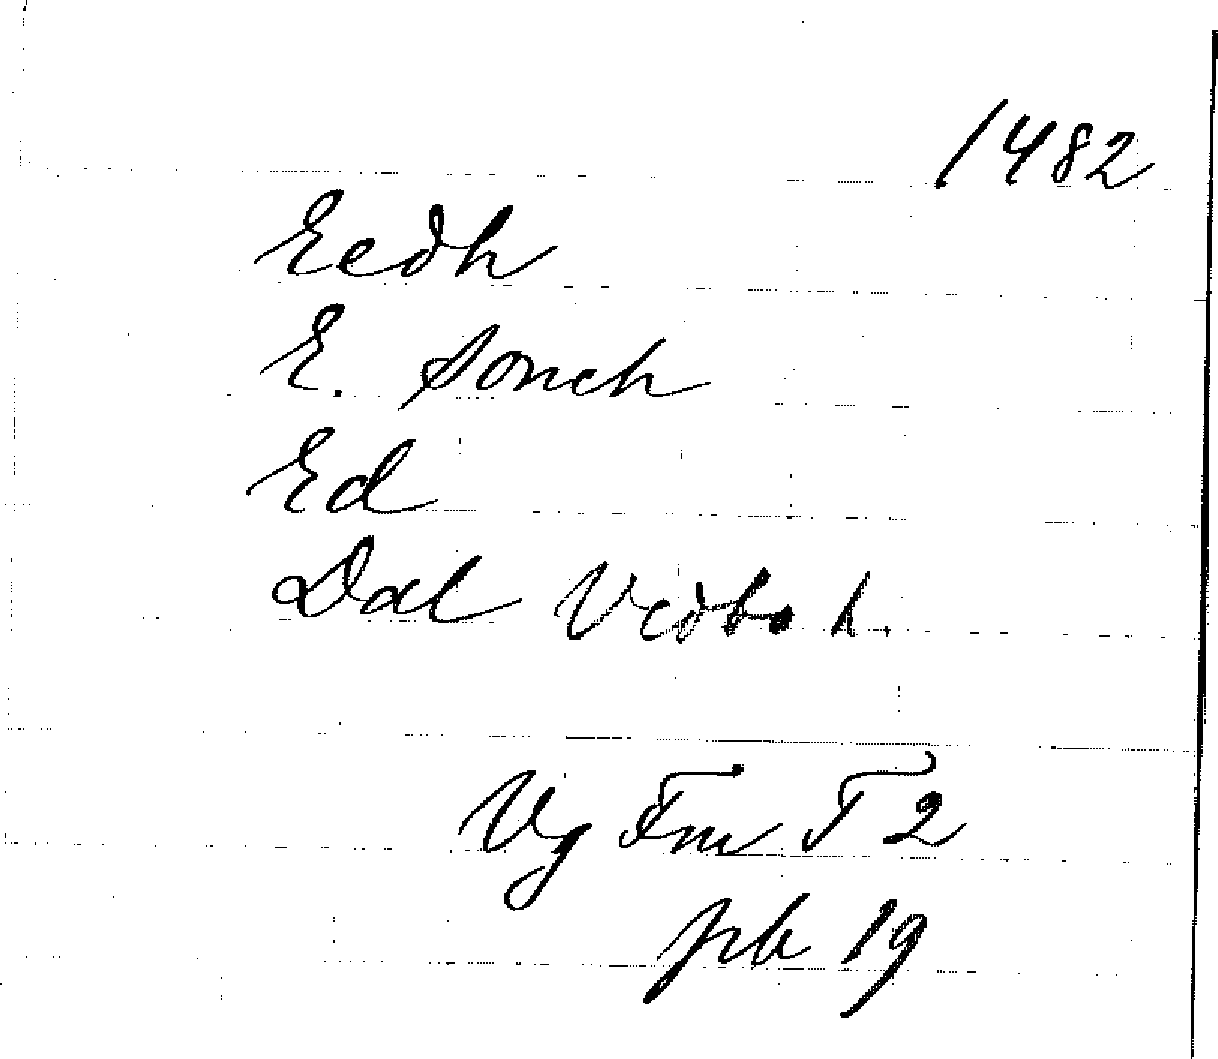 1482
Eedh
E. sonch
Ed
Dal Vedbo h.
Vg Fm T 2
pb 19